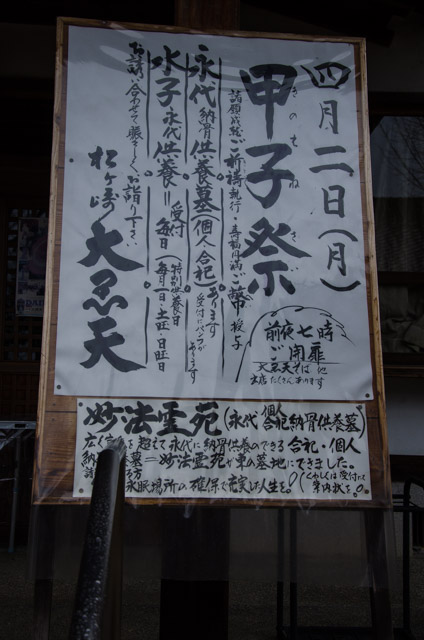 四月二日(月)
甲子祭
きのえねさい
諸願成就ご祈祷執行・喜福円満ご幣授与
前夜七時
ご開扉
大黒天そば他
出店たくさんあります
永代納骨供養墓(個人 合祀)あります
受付にパンフがあります
水子永代供養=受付 毎日
特別供養日
(毎月1日・土旺・日旺日
お誘い合わせて賑々しくお詣り下さい
松ヶ崎大黒天
妙法霊苑(永代 個人 合祀 納骨供養墓)
を超えて永代に納骨供養のできる合祀・個人
墓=妙法霊苑が東の墓地にできました。
永眠場所の確保で充実した人生を。
(くわしくは受付にて案内状を。)